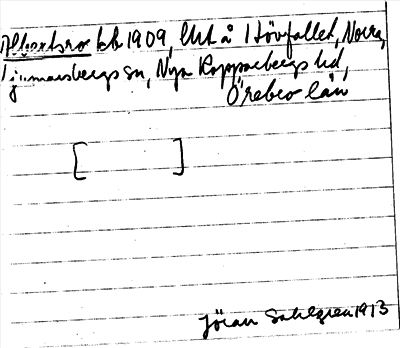 Albertsro kb 1909, lht å Hövfallet, Norra
Ljusnarsbergs sn, Nya Kopparbergs hd,
Örebro län
[ ]
Jöran Sahlgren 1913